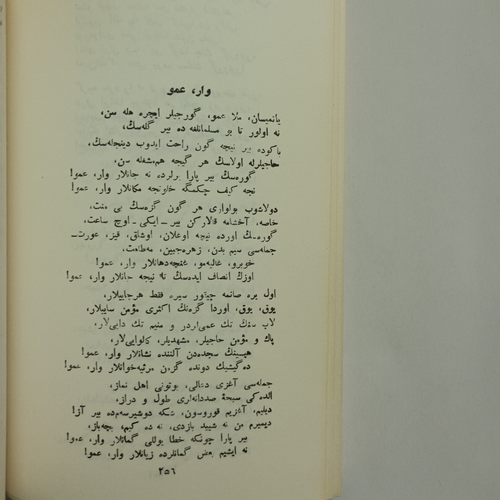 وار، عمو
یانمیسان، ملا عمو، گورجیلر ایچره هله سن،
نه اولور تا بو مسلمانلغه ده بیر گله‌سڭ،
باکوده بیر نیچه گون راحت ایدوب دینجله‌سڭ،
حاجیلرله اولاسڭ هر گیجه هم‌مشغله سن،
گوره‌سڭ بیر پارا برلرده نه جانلار وار، عمو!
نجه کیف چکمگه خلوتجه مکانلار وار، عمو!
دولانوب بولواری هر گون گزه‌سڭ بی منت،
خاصه، آخشامه قالارکن بیر ـ ایکی ـ اوچ ساعت،
گوره‌سڭ اورده نیجه اوغلان، اوشاق، قیز، عورت ـ
جمله‌سی سیم بدن، زهره‌جبین، مه‌طلعت،
خوبرو، غالیه‌مو، غنچه‌دهانلار وار، عمو!
اوزڭ انصاف ایده‌سڭ تا نیجه جانلار وار، عمو!
اول بره صانمه چیخور سیره فقط هرجاییلار،
یوق، یوق، اوردا گزه‌نڭ اکثری مؤمن ساییلار،
لاپ سنڭ تك عمی‌لردر و منیم تك دایی‌لار،
پاك و مؤمن حاجیلر، مشهدیلر، کالوایی‌لار،
هپسینڭ سجده‌دن آلننده نشانلار وار، عمو!
ده‌گیشیك دونده گزه‌ن مرثیه‌خوانلار وار، عمو!
جمله‌سی آغزی دعالی، بوتونی اهل نماز،
الده‌کی سبحهٔ صددانه‌لری طول و دراز،
دیلیم، آغزیم قوروسون، شکه دوشیرسه‌م ده بیر آز!
دیمیرم من نه شیید یازدی، نه ده کیم، بچه‌باز،
بیر پارا چونکه خطا یوللی گمانلار وار، عمو!
نه ایشیم بعض گمانلرده زیانلار وار، عمو!
٢٥٦